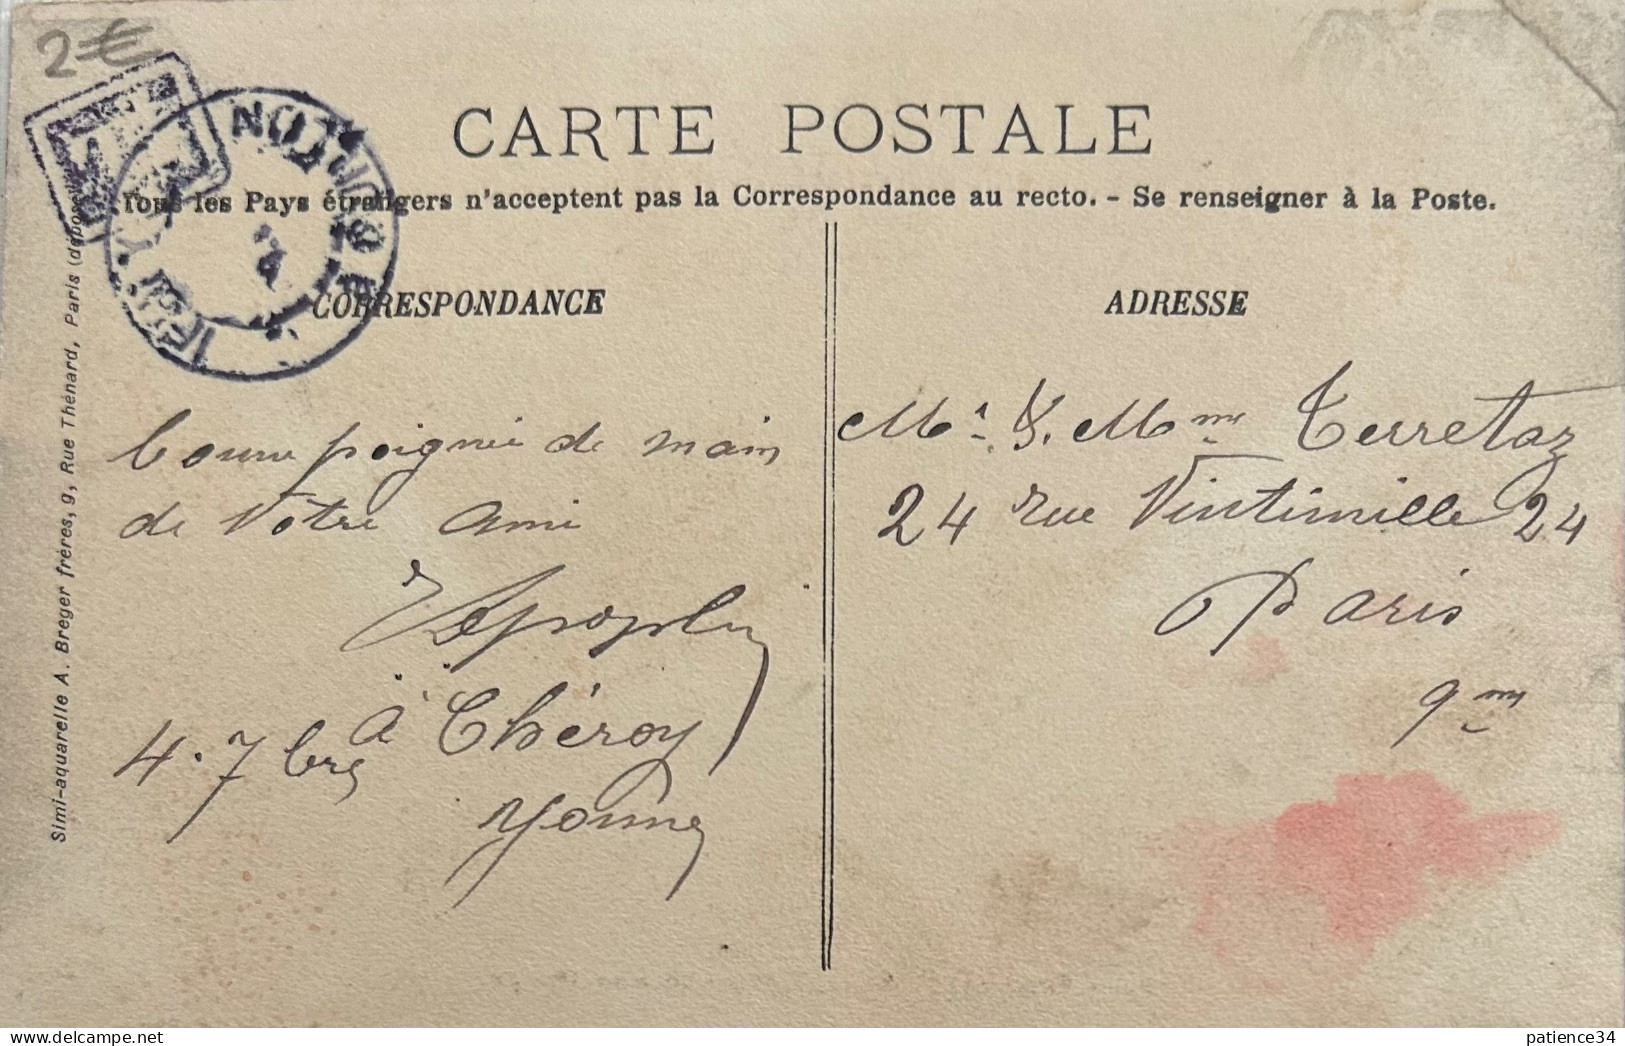 2€
CARTE POSTALE
Tous les Pays étrangers n'acceptent pas la Correspondance au recto. - Se renseigner à la Poste.
CORRESPONDANCE
bonne poignée de main
de Votre ami
à Chéroy
4. 7bre
Yonne
ADRESSE
Mr & Mme Terretaz
24 rue Vintimille 24
Paris
9me
Simi-aquarelle A. Breger frères, 9, Rue Thénard, Paris
patience34